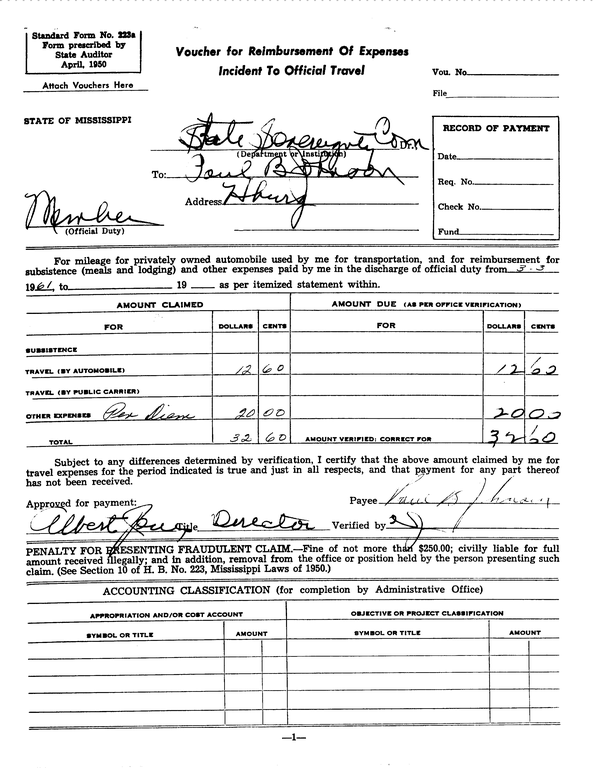 Standard Form No. 223a
Form prescribed by
State Auditor
April, 1950
Attach Vouchers Here
Voucher for Reimbursement Of Expenses
Incident To Official Travel
Vou. No.
File
STATE OF MISSISSIPPI
State Sovereignty Com
(Department or Institution)
To: Paul B Johnson
Address Hburg
Member
(Official Duty)
RECORD OF PAYMENT
Date
Req. No.
Check No.
Fund
For mileage for privately owned automobile used by me for transportation, and for reimbursement for
subsistence (meals and lodging) and other expenses paid by me in the discharge of official duty from 3-3
1961, to 19 as per itemized statement within.
AMOUNT CLAIMED AMOUNT DUE (AS PER OFFICE VERIFICATION)
FOR DOLLARS CENTS FOR DOLLARS CENTS
SUBSISTENCE
TRAVEL (BY AUTOMOBILE) 12 60 12 60
TRAVEL (BY PUBLIC CARRIER)
OTHER EXPENSES Per Diem 20 00 20 00
TOTAL 32 60 AMOUNT VERIFIED: CORRECT FOR 32 60
Subject to any differences determined by verification, I certify that the above amount claimed by me for
travel expenses for the period indicated is true and just in all respects, and that payment for any part thereof
has not been received.
Approved for payment: Payee Paul B Johnson
Albert Title Director Verified by
PENALTY FOR PRESENTING FRAUDULENT CLAIM.—Fine of not more than $250.00; civilly liable for full
amount received illegally; and in addition, removal from the office or position held by the person presenting such
claim. (See Section 10 of H. B. No. 223, Mississippi Laws of 1950.)
ACCOUNTING CLASSIFICATION (for completion by Administrative Office)
APPROPRIATION AND/OR COST ACCOUNT OBJECTIVE OR PROJECT CLASSIFICATION
SYMBOL OR TITLE AMOUNT SYMBOL OR TITLE AMOUNT
—1—